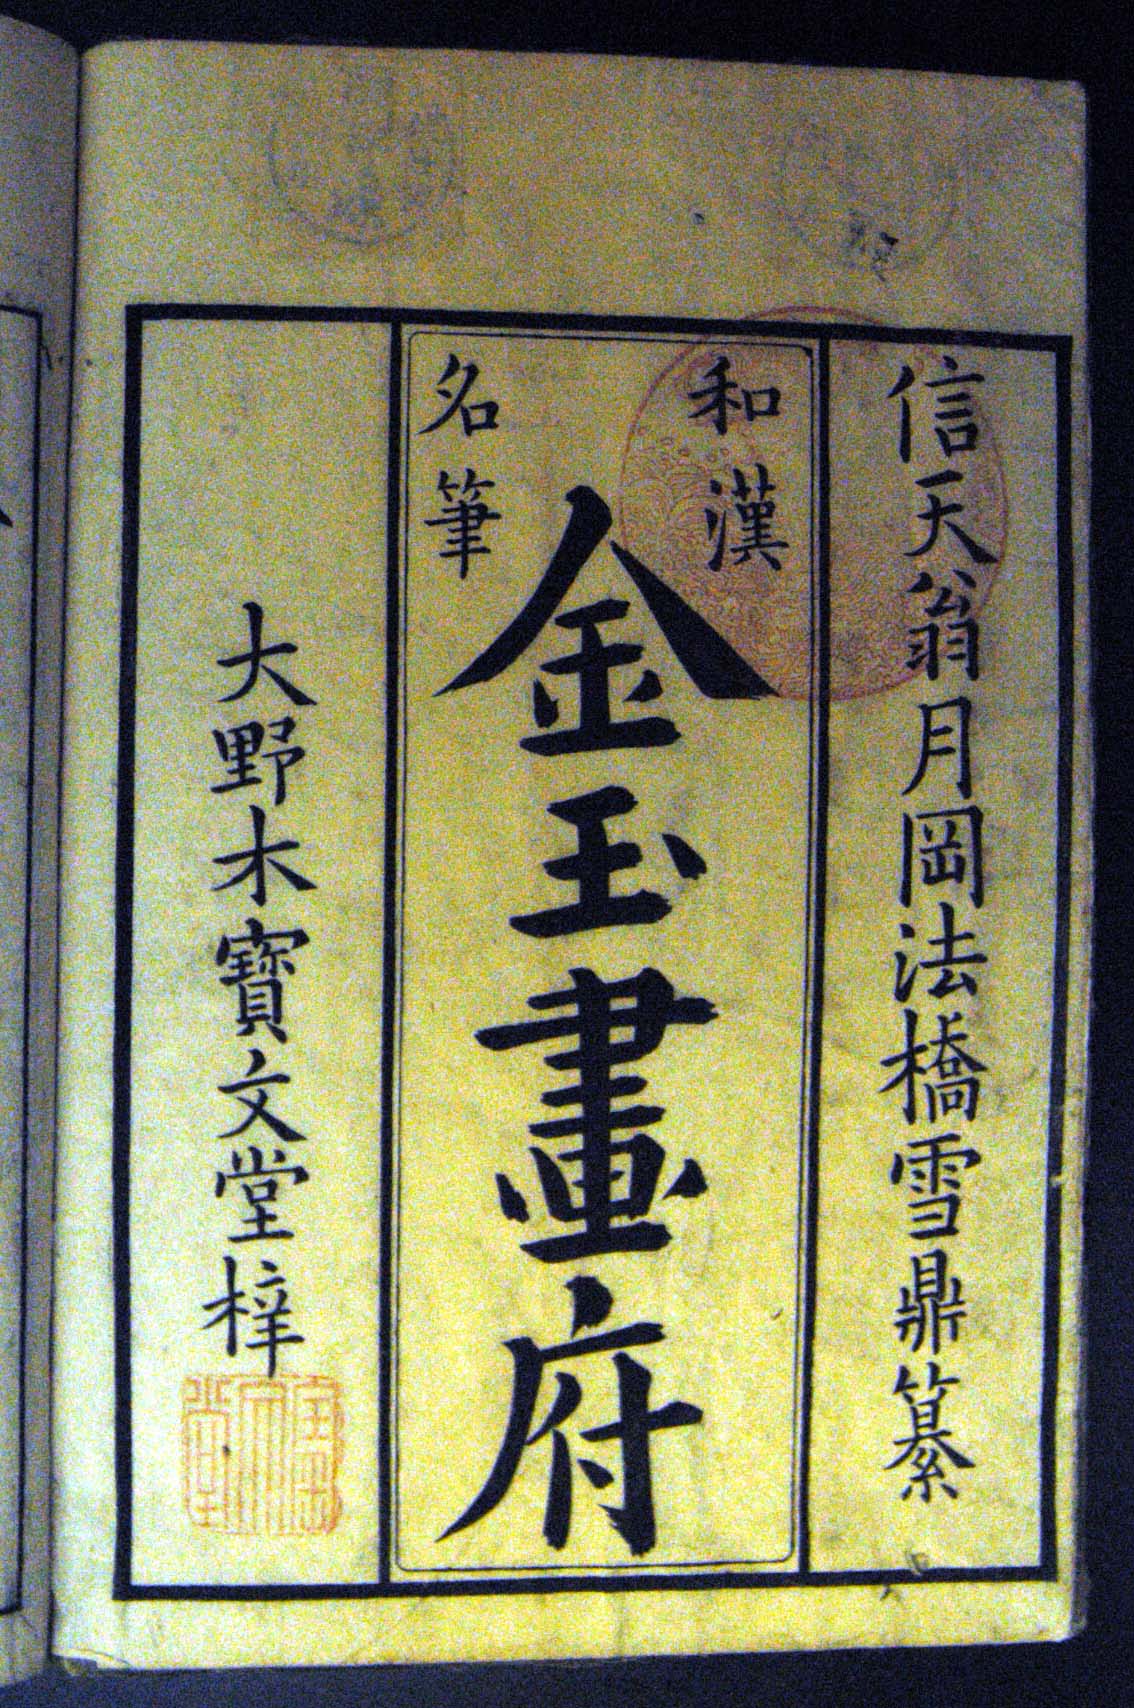 信天翁月岡法橋雪鼎纂
和漢
名筆
金玉畫府
大野木寶文堂梓